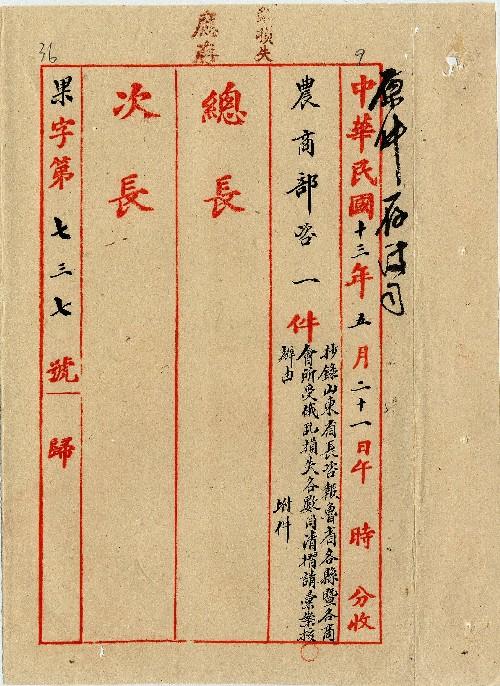 36
9
原件存法司
中華民國十三年五月二十一日午 時 分收
農商部咨一件
抄錄山東省長咨報魯省各縣暨各商
會所受俄乱損失各數目清摺請彙案核
辦由
附件
總長
次長
果字第七三七號 歸
損失